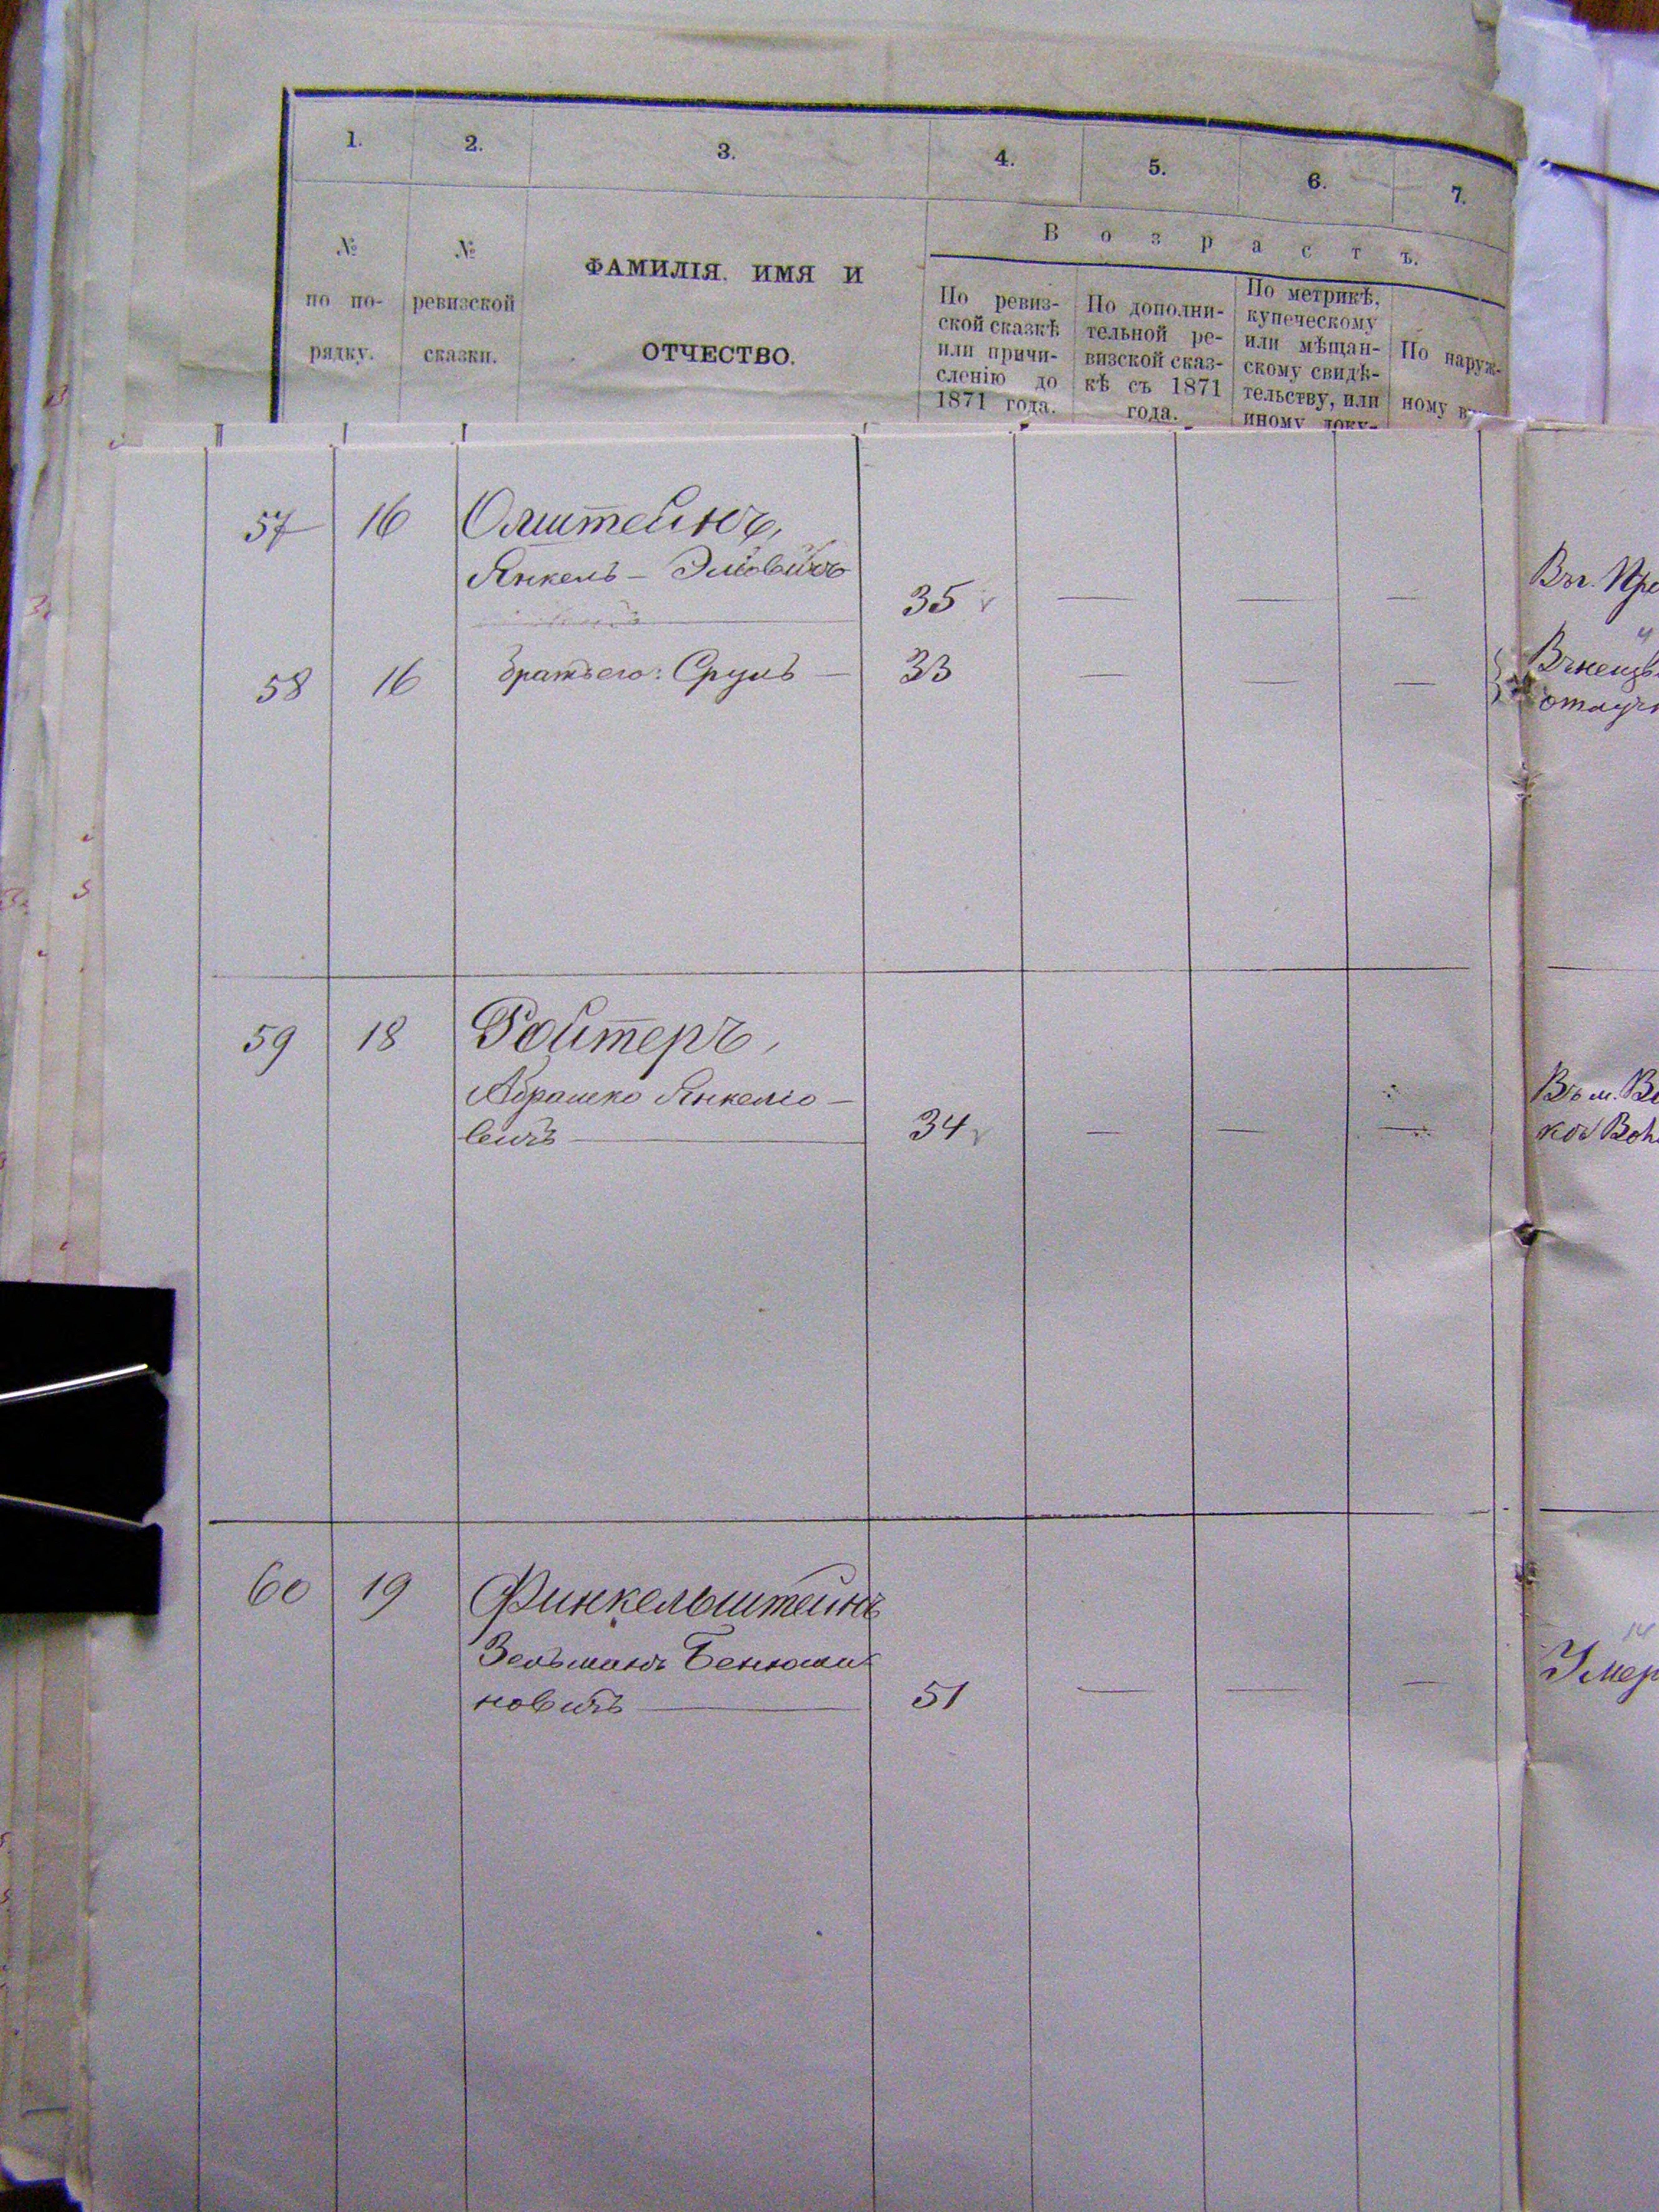 1. 2. 3. 4. 5. 6. 7.
В о з р а с т ъ.
№ по по- рядку.
№ ревизской сказки.
ФАМИЛІЯ. ИМЯ И
ОТЧЕСТВО.
По ревиз-
ской сказкѣ
или причи-
сленію до
1871 года.
По дополни-
тельной ре-
визской сказ-
кѣ съ 1871
года.
По метрикѣ,
купеческому
или мѣщан-
скому свидѣ-
тельству, или
иному доку-
По наруж-
ному в
57 16 Олштейнъ,
Янкель — Эліовичъ
35 — — —
Въ г.
58 16 братъ его: Сруль — 33 — — —
отлуч
59 18 Ройтеръ,
Абрашко Янкеліо-
вичъ — 34 — — —
Въ м.
60 19 Финкельштейнъ
Зельманъ Бенюми
новичъ — 51 — — —
Умер